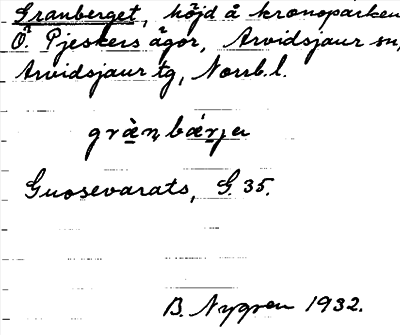 Granberget, höjd å kronoparken
Ö. Pjeskers ägor, Arvidsjaur sn,
Arvidsjaur tg, Norrb.l.
grànbárja
Guosevarats, G. 35.
B. Nygren 1932.